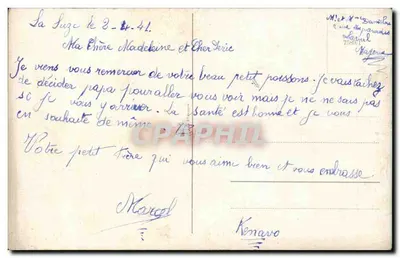 La Suze le 2-4.41
Ma Chère Madeleine et Cher
Je viens vous remercier de votre beau petit poissons. Je vais tachez
de décider papa pour aller vous voir mais je ne ne sais pas
si je vous y arriver. La santé est bonne et je vous
en souhaite de même
CPAPHIL
Votre petit frère qui vous aime bien et vous embrasse
Marcel
Kenavo